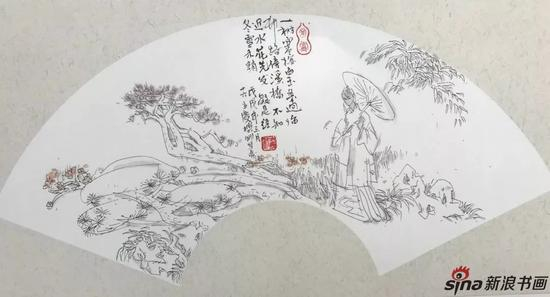 一树寒梅白玉条迥临
村路傍溪桥不知
近水花先发疑是经
冬雪未销
戊戌年三月
sina新浪书画